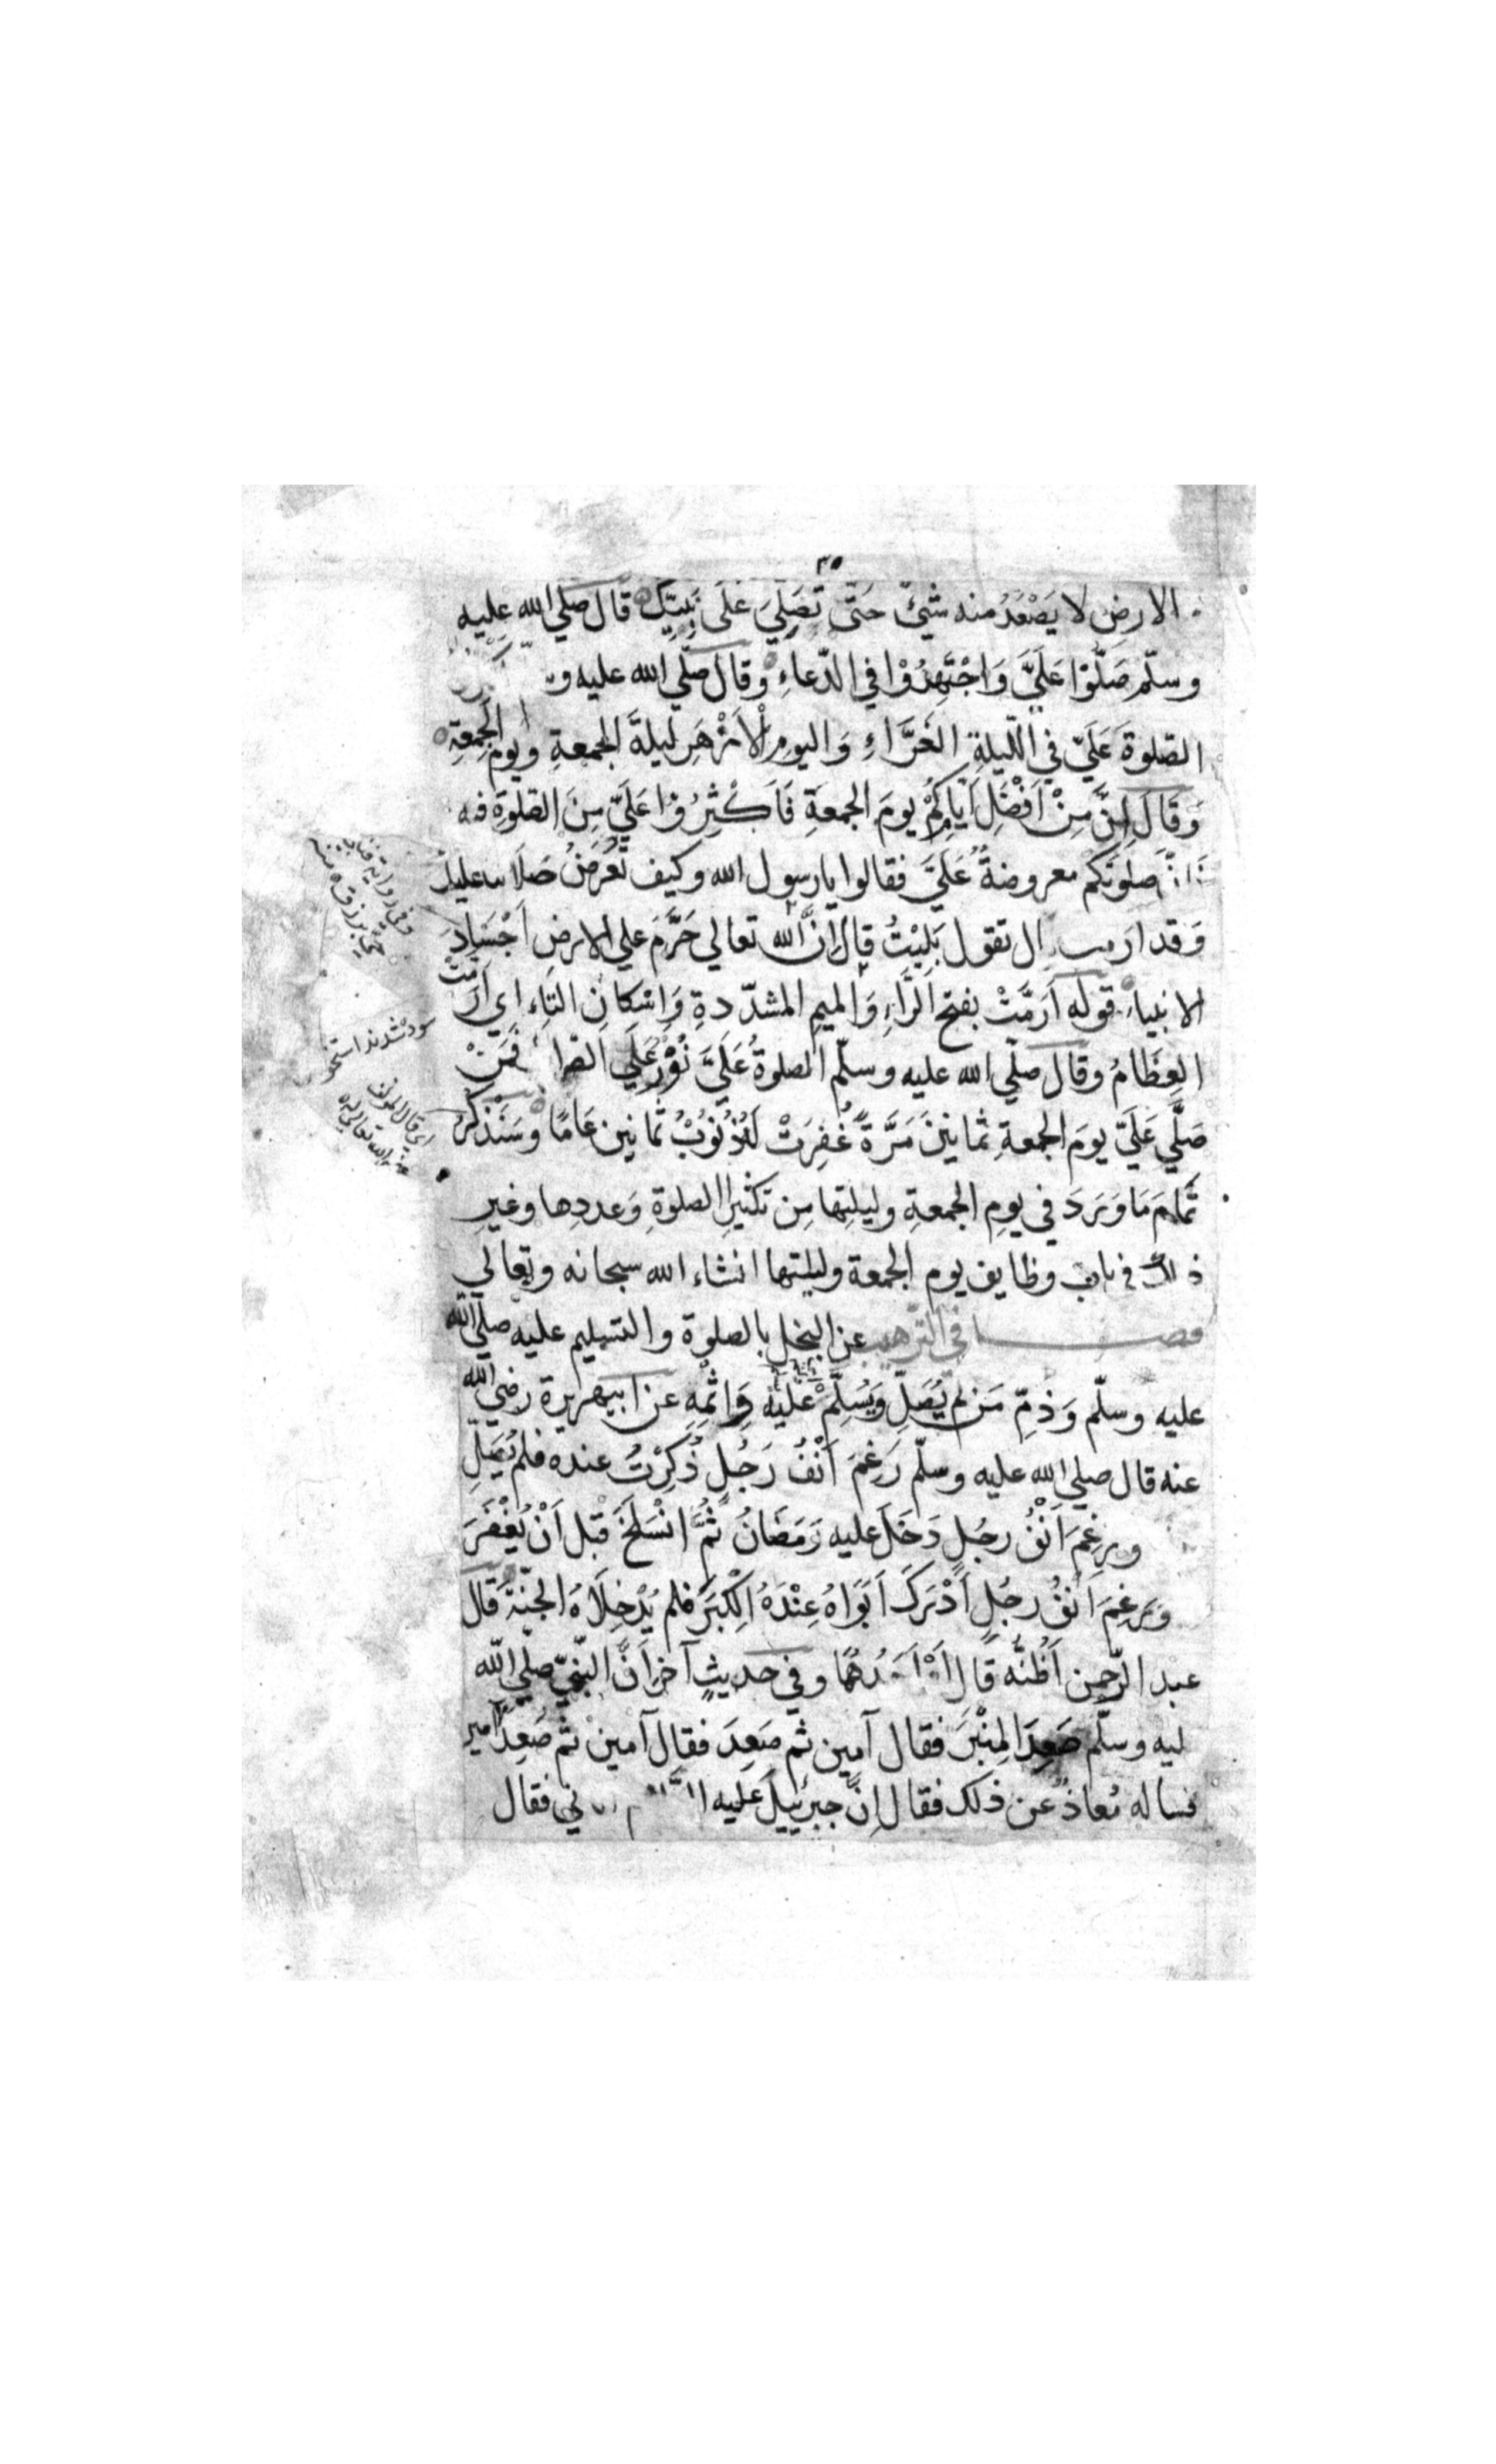 ٣٥
الارضِ لا يَصْعَدُ منه شَيْئٌ حَتّى تُصَلِّيَ عَلَى نَبِيِّكَ قَالَ صلي الله عليه
وسلّم صَلّوْا عَلَيَّ وَاجْتَهِدُوْا في الدّعاءِ وقال صلّي الله عليه و
الصّلوةَ عَلَيّ في اللّيلةِ الغَرَّاءِ وَاليومِ الْاَزْهَرِ ليلةَ الجمعةِ ويومَ الجمعةِ
وَقَالَ اِنَّ مِنْ اَفْضَلِ اَيّامِكُمْ يومَ الجمعةِ فَاَكْثِرُوْا عَلَيّ مِنَ الصّلوةِ فيه
صلوتَكم معروضةٌ عَلَيَّ فقالوا يارسول الله وكيف تُعْرَضُ صَلاتنا عليك
وَقد ارمت تقول بَلِيْتُ قال اِنَّ الله تعالي حَرَّمَ علي الارضِ اَجْسَادَ
الانبياءِ قوله اَرَمَّتْ بفتح الرَّاءِ وَالميمِ المشدّدةِ وَاسْكانِ التّاءِ اي اَرَمَّتْ
العِظَامُ وقال صلّي الله عليه وسلّم الصلوةُ عَلَيَّ نُوْرٌ عَلَي الصّرا فَمَنْ
صَلَّي عَلَيّ يومَ الجمعةِ ثمانينَ مَرَّةً غُفِرَتْ لَهُ ذُنُوْبُ ثمانين عَامًا وسَنَذْكُرُ
تَمَامَ مَا وَرَدَ في يومِ الجمعةِ وليلتِها مِن تكثيرِ الصلوةِ وَعددِها وغيرِ
ذلك في باب وظايف يوم الجمعة وليلتها انشاء الله سبحانه وتعالي
فصل في التّرهيب عن البخل بالصلوة والتسليم عليه صلّي الله
عليه وسلّم وَذمّ مَن لم يُصَلِّ وَيُسَلِّمْ عليه وَاثْمِهِ عن ابيهريرة رضي الله
عنه قال صلي الله عليه وسلّم رَغِمَ اَنْفُ رَجُلٍ ذُكِرْتُ عنده فلم يُصَلِّ
ورغِمَ اَنْفُ رجُلٍ دَخَلَ عليه رَمَضَانُ ثُمَّ انْسَلَخَ قبل اَنْ يُغْفَرَ
وَرَغِمَ اَنْفُ رجُلٍ اَدْرَكَ اَبَوَاهُ عِنْدَهُ الْكِبَرَ فلم يُدْخِلَاهُ الجنّةَ قال
عبد الرّحمن اَظُنُّه قال اَوْ اَحَدُهُمَا وفي حديثٍ آخر اَنَّ النّبيّ صلّي الله
ليه وسلّم صَعِدَ المِنْبَرَ فقال آمين ثم صَعِدَ فقال آمين ثم صَعِدَ امين
فساله مُعاذٌ عن ذلك فقال اِنَّ جبرئيلَ عليه فقال
وفي رواية
سوده شدند استخوا
اي قال المؤلف
الله تعالي